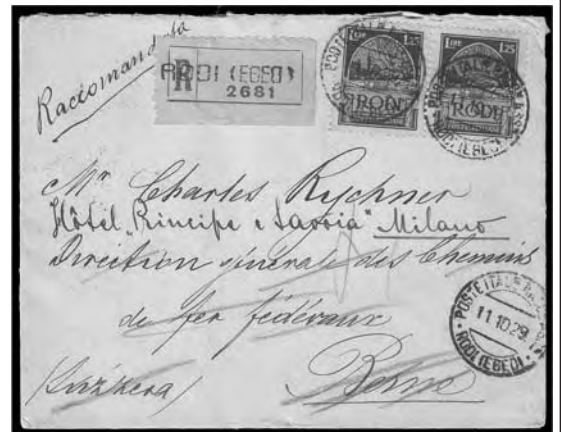 Raccomandata
R
RODI (EGEO)
2681
LIRE 1,25
RODI
LIRE 1,25
RODI
Mr Charles Rychner
Hôtel „Principe e Savoia" Milano
Direction générale des Chemins
de fer fédéraux
Berne
(Svizzera)
POSTE ITAL
11.10.29
RODI (EGEO)